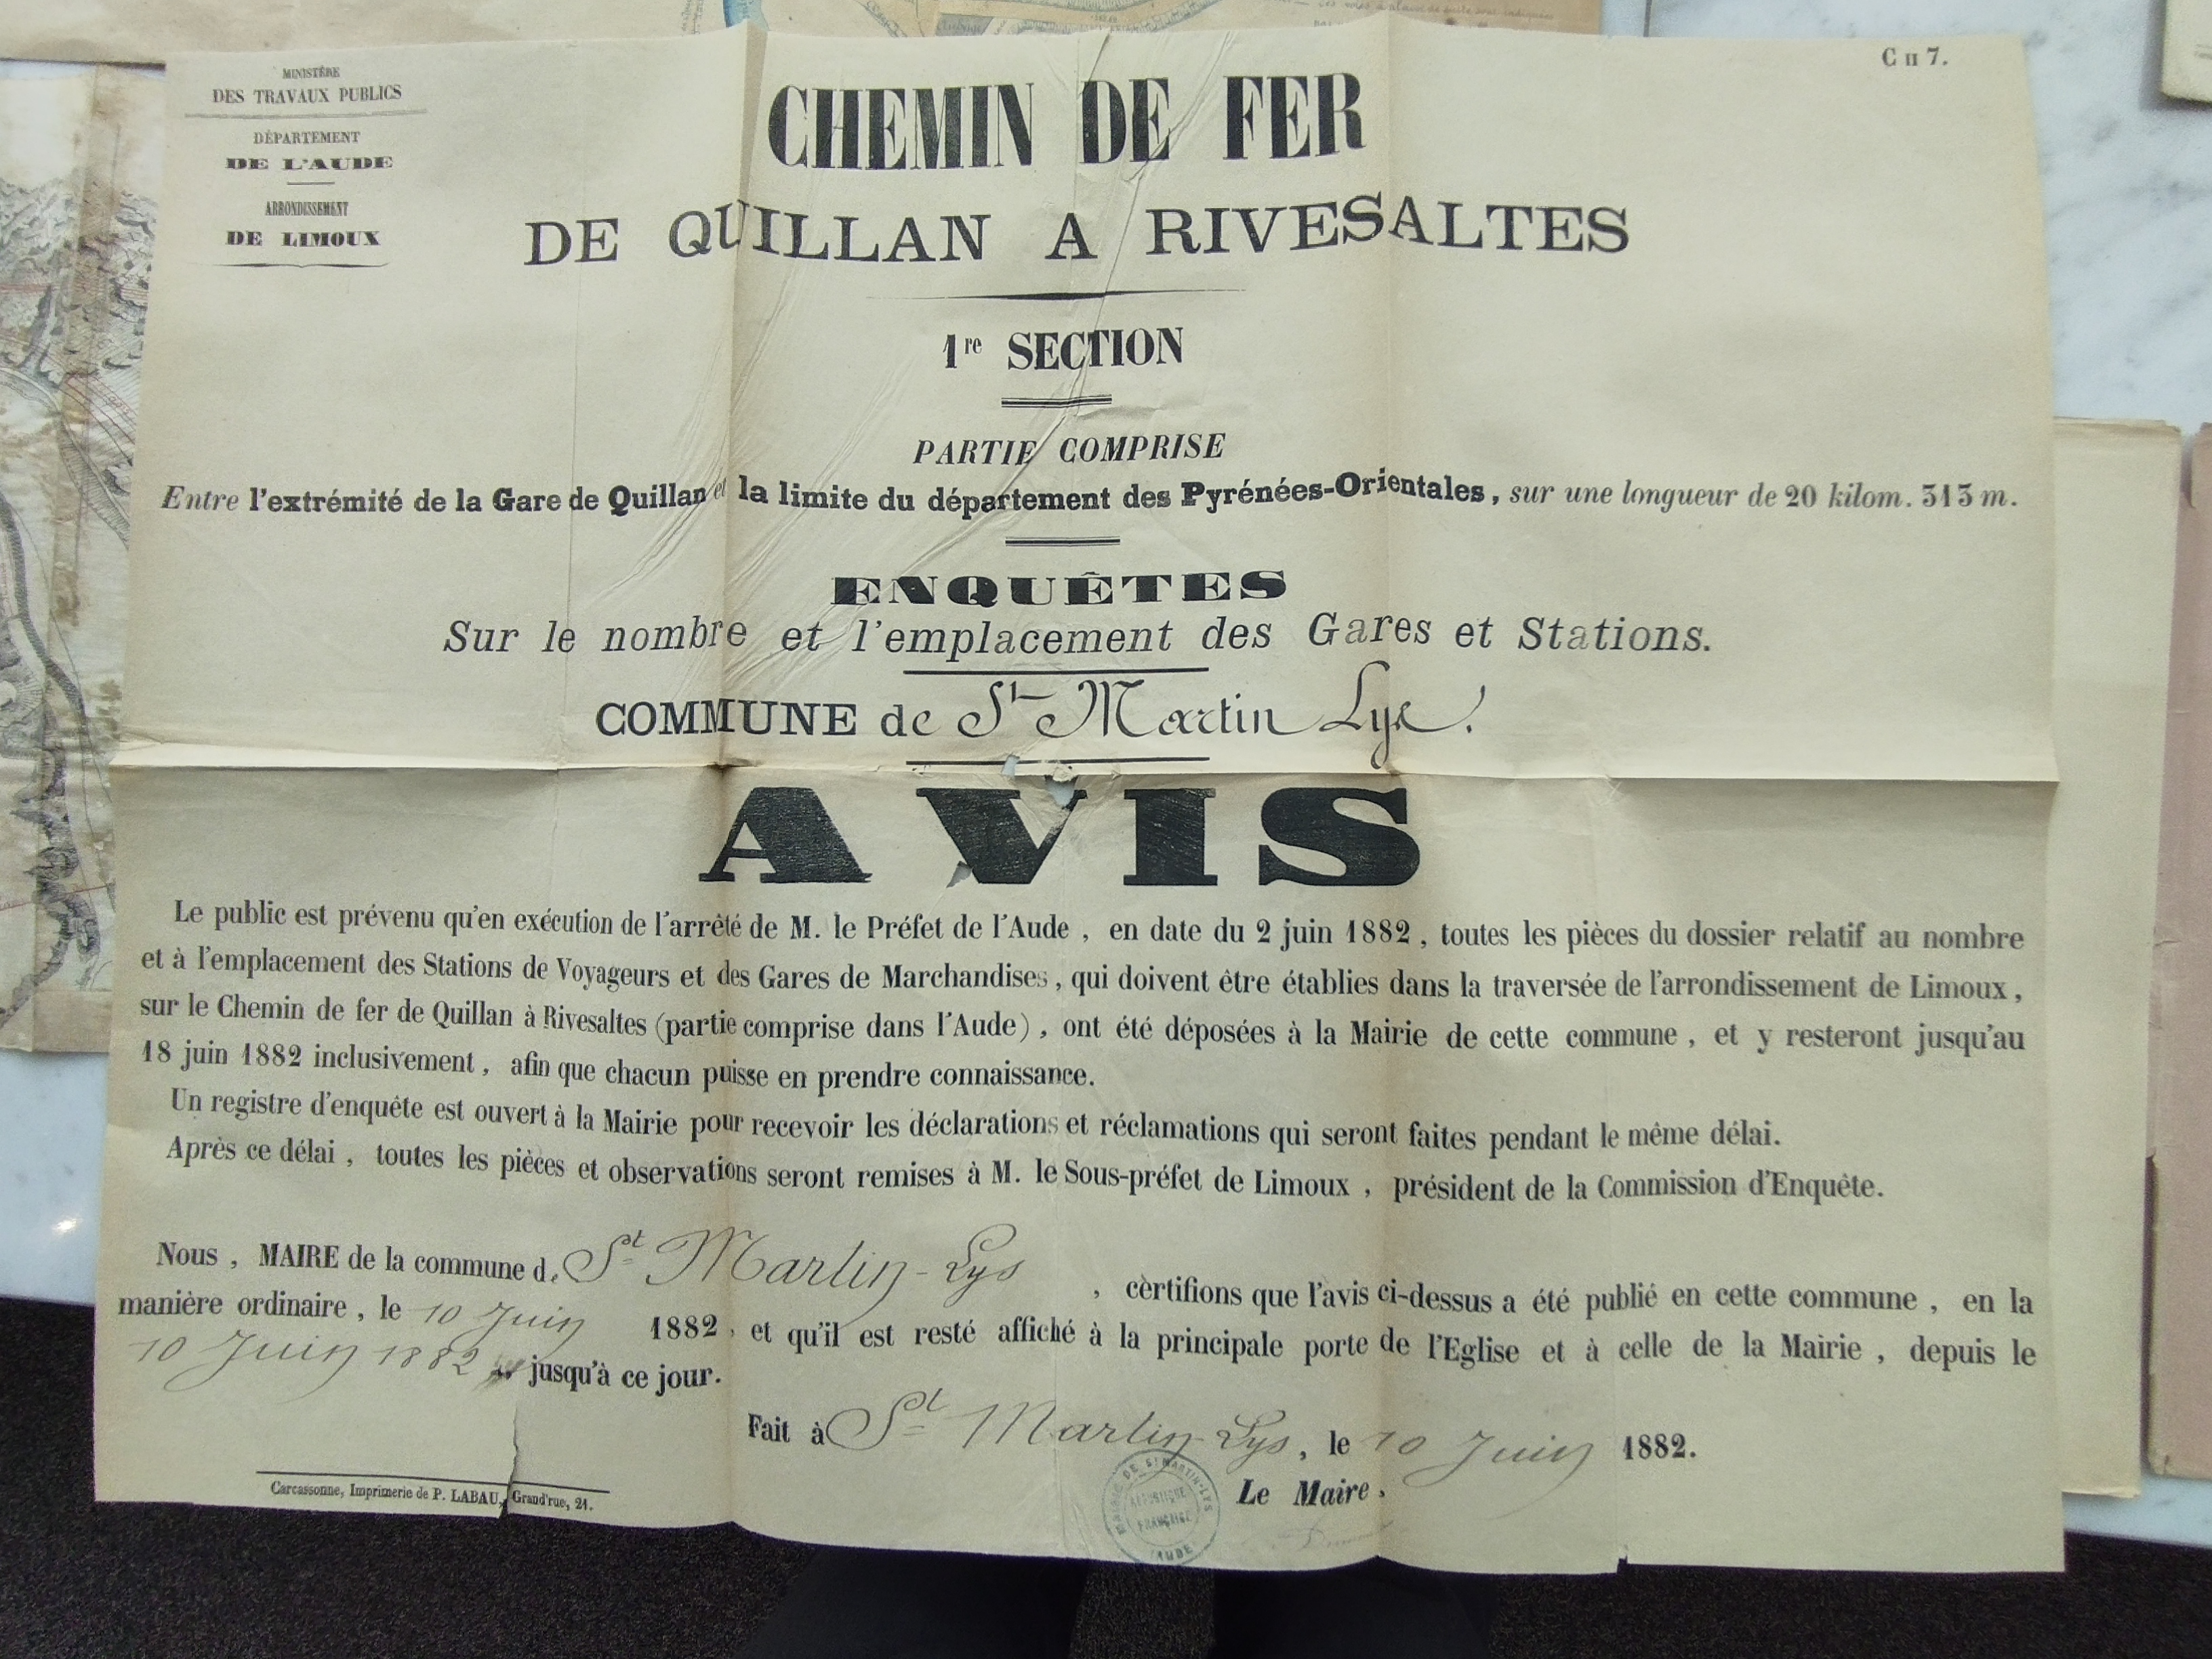 C II 7.
MINISTÈRE
DES TRAVAUX PUBLICS
DÉPARTEMENT
DE L'AUDE
ARRONDISSEMENT
DE LIMOUX
CHEMIN DE FER
DE QUILLAN A RIVESALTES
1re SECTION
PARTIE COMPRISE
Entre l'extrémité de la Gare de Quillan et la limite du département des Pyrénées-Orientales, sur une longueur de 20 kilom. 313 m.
ENQUÊTES
Sur le nombre et l'emplacement des Gares et Stations.
COMMUNE de St Martin Lys.
AVIS
Le public est prévenu qu'en exécution de l'arrêté de M. le Préfet de l'Aude, en date du 2 juin 1882, toutes les pièces du dossier relatif au nombre
et à l'emplacement des Stations de Voyageurs et des Gares de Marchandises, qui doivent être établies dans la traversée de l'arrondissement de Limoux,
sur le Chemin de fer de Quillan à Rivesaltes (partie comprise dans l'Aude), ont été déposées à la Mairie de cette commune, et y resteront jusqu'au
18 juin 1882 inclusivement, afin que chacun puisse en prendre connaissance.
Un registre d'enquête est ouvert à la Mairie pour recevoir les déclarations et réclamations qui seront faites pendant le même délai.
Après ce délai, toutes les pièces et observations seront remises à M. le Sous-préfet de Limoux, président de la Commission d'Enquête.
Nous, MAIRE de la commune de St Martin-Lys, certifions que l'avis ci-dessus a été publié en cette commune, en la
manière ordinaire, le 10 Juin 1882, et qu'il est resté affiché à la principale porte de l'Eglise et à celle de la Mairie, depuis le
10 Juin 1882 jusqu'à ce jour.
Fait à St Martin-Lys, le 10 Juin 1882.
Le Maire,
MAIRIE DE St MARTIN-LYS
RÉPUBLIQUE
FRANÇAISE
(AUDE)
Carcassonne, Imprimerie de P. LABAU, Grand'rue, 21.